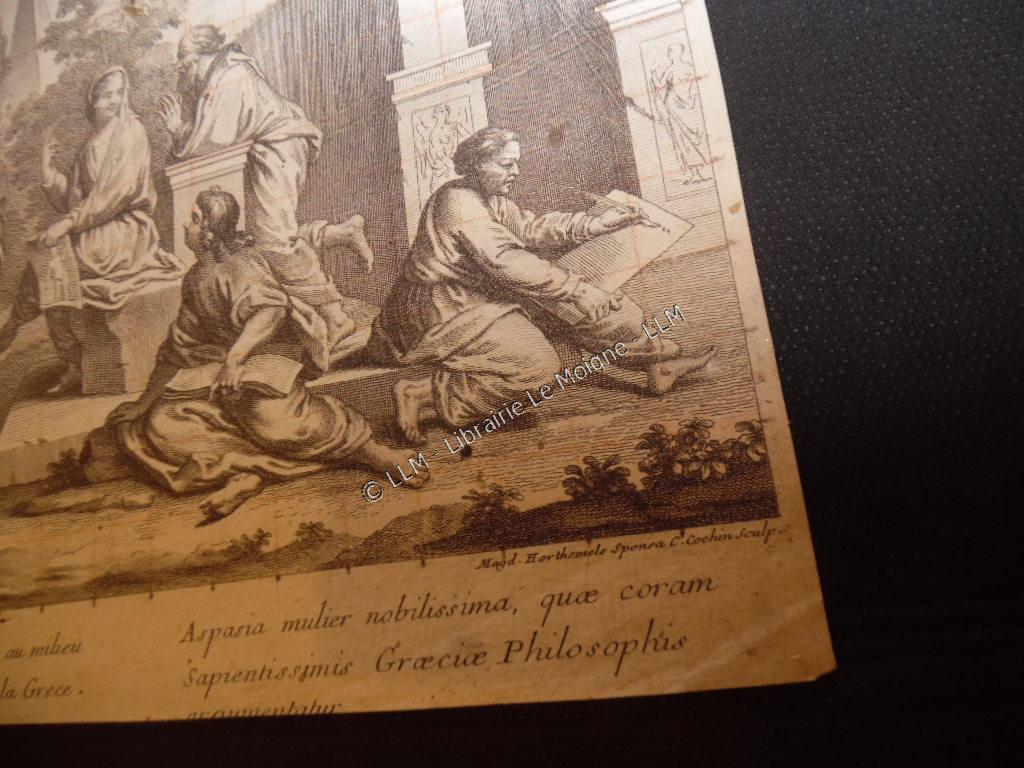 © LLM - Librairie Le Moigne - LLM
Magd. Horthemels Sponsa C. Cochin Sculp.
au milieu
la Grece.
Aspasia mulier nobilissima, quæ coram
Sapientissimis Græciæ Philosophis
argumentatur